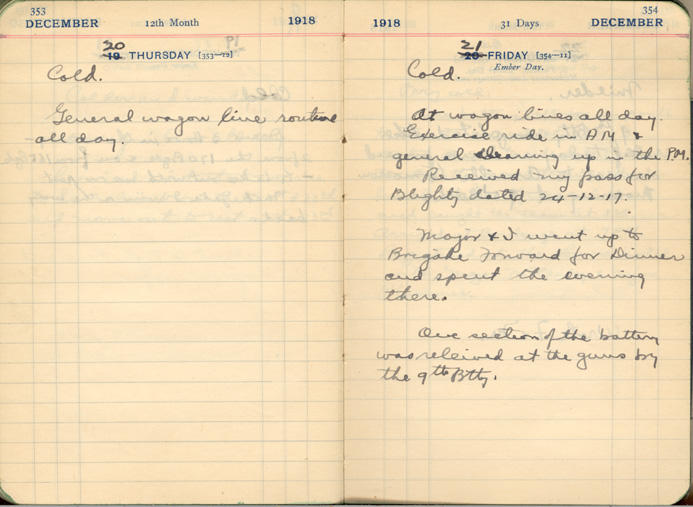 353
DECEMBER 12th Month 1918
20
19 THURSDAY [353—12]
Cold.
General wagon line routine
all day.
354
1918 31 Days DECEMBER
21
20 FRIDAY [354—11]
Ember Day.
Cold.
At wagon lines all day.
Exercise ride in A.M. &
general cleaning up in the P.M.
Received my pass for
Blighty dated 24-12-17.
Major & I went up to
Brigade Forward for Dinner
and spent the evening
there.
One section of the battery
was releived at the guns by
the 9th Btty.